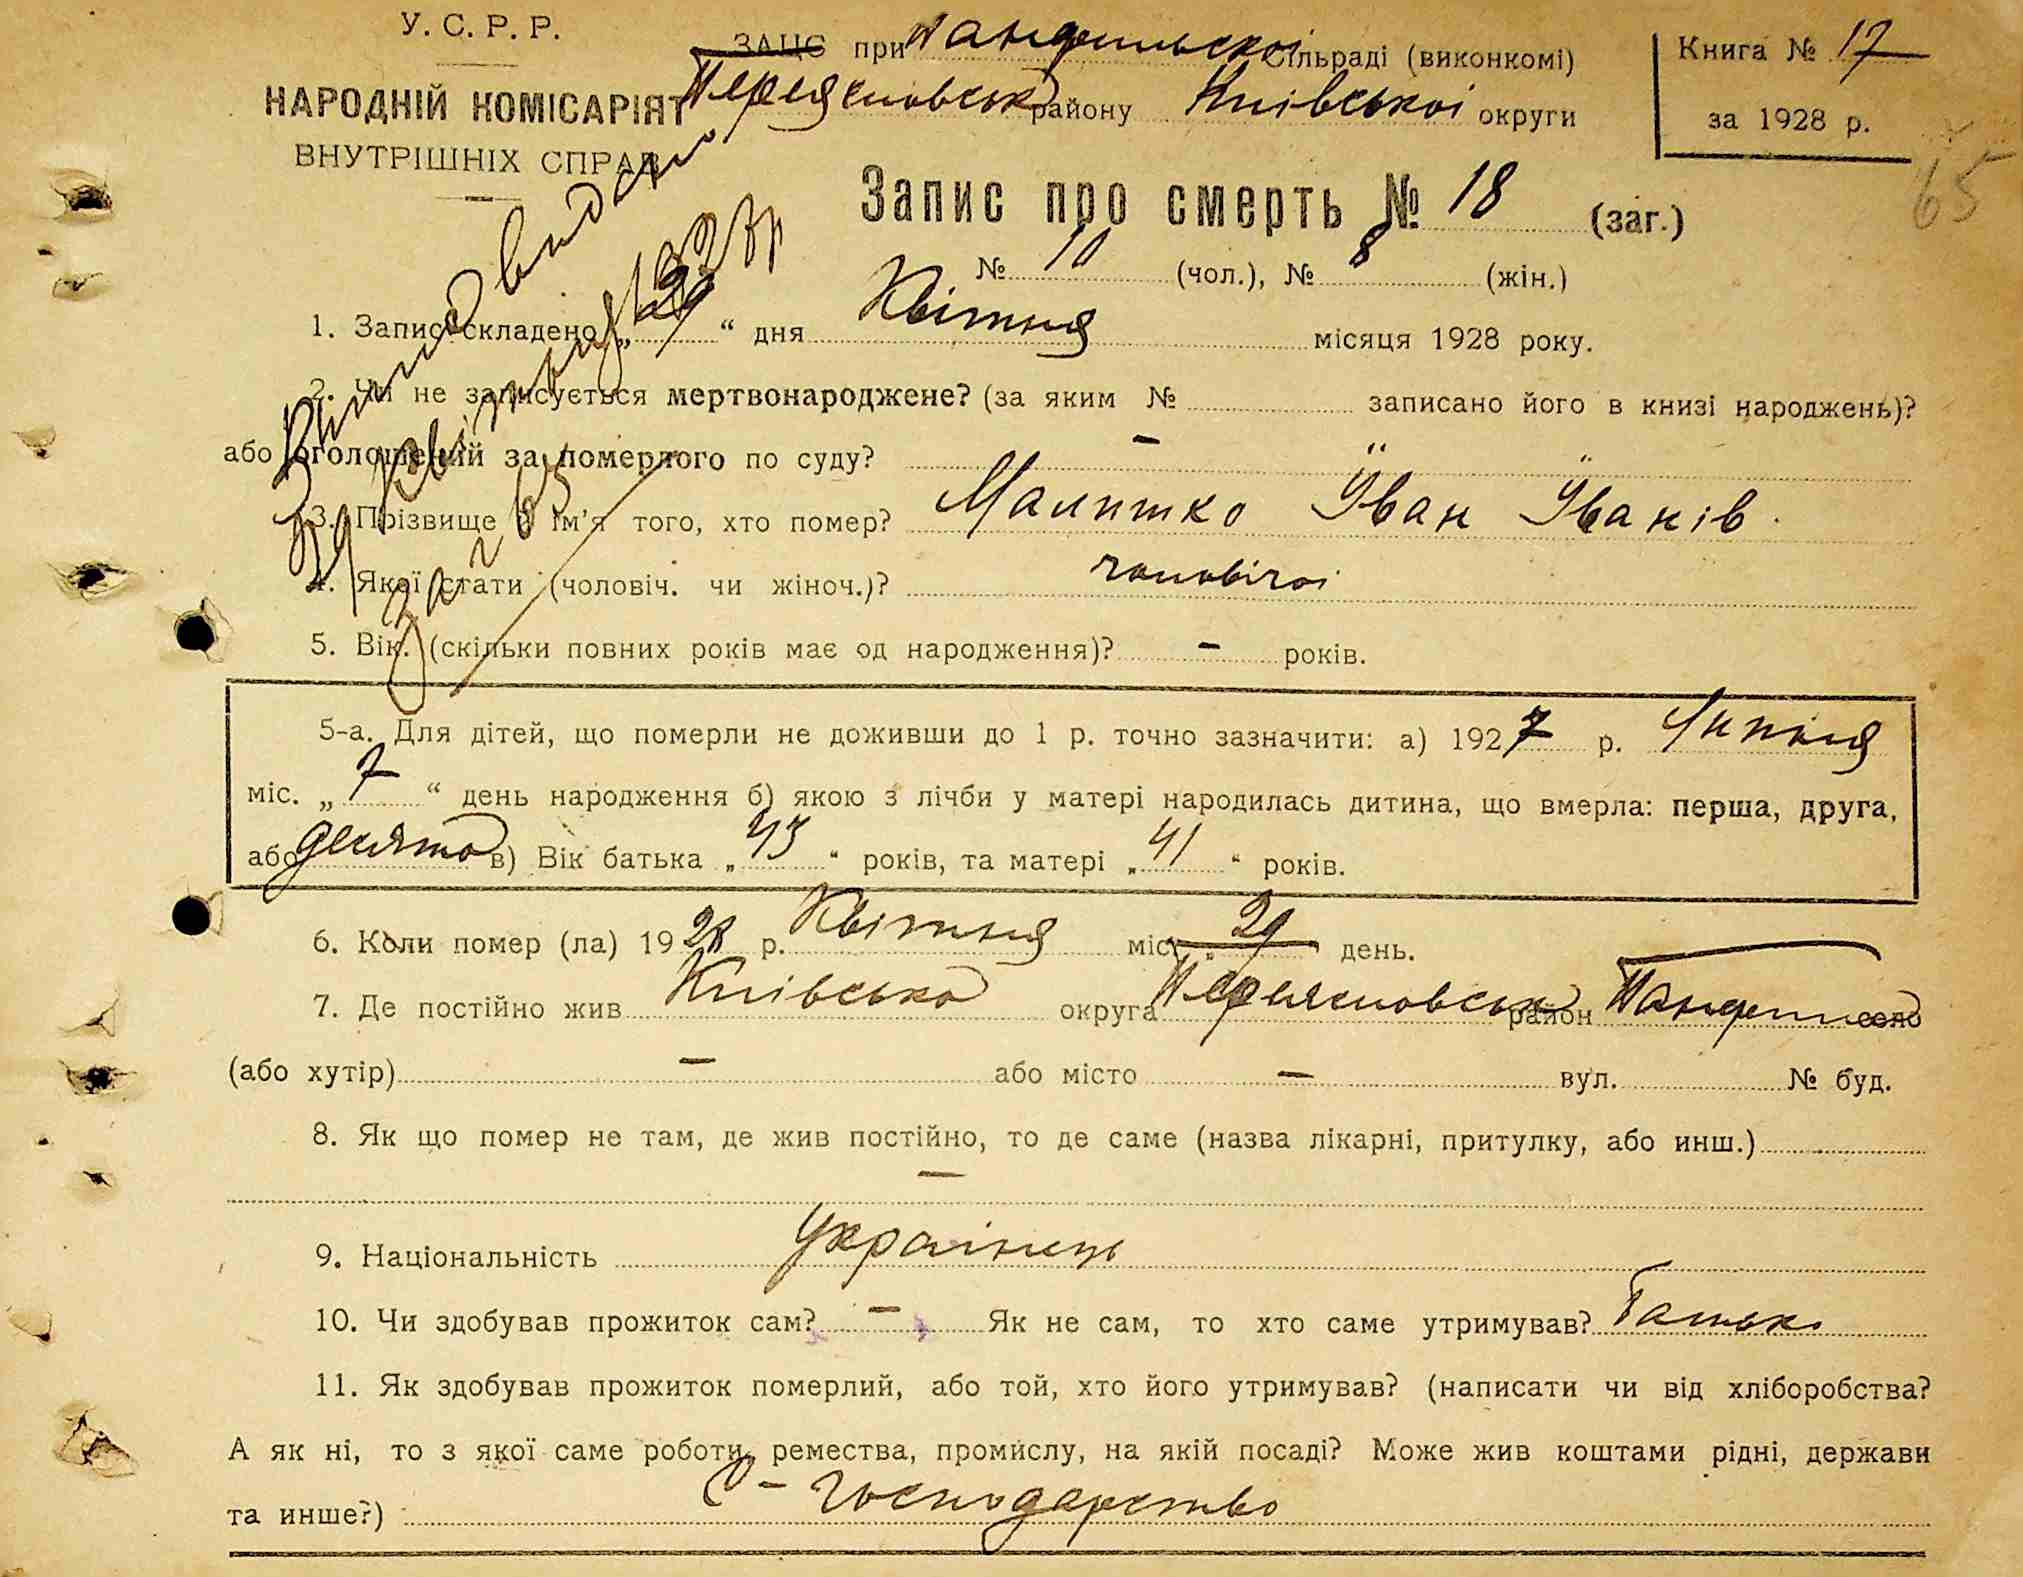 У. С. Р. Р.
НАРОДНІЙ КОМІСАРІЯТ
ВНУТРІШНІХ СПРАВ
ЗАЦС при сільраді (виконкомі)
району Київської округи
Книга № 17
за 1928 р.
65
Запис про смерть № 18 (заг.)
№ 10 (чол.), № 8 (жін.)
1. Запис складено „29“ дня Квітня місяця 1928 року.
2. Чи не записується мертвонароджене? (за яким № записано його в книзі народжень)?
або оголошений за померлого по суду? –
3. Прізвище й ім'я того, хто помер? Малишко Іван Іванів
4. Якої стати (чоловіч. чи жіноч.)? чоловічої
5. Вік. (скільки повних років має од народження)? – років.
5-а. Для дітей, що померли не доживши до 1 р. точно зазначити: а) 1927 р. Липня
міс. „7“ день народження б) якою з лічби у матері народилась дитина, що вмерла: перша, друга,
або десята в) Вік батька „43“ років, та матері „41“ років.
6. Коли помер (ла) 1928 р. Квітня міс. „29 день.
7. Де постійно жив Київська округа район село
(або хутір) – або місто – вул. № буд.
8. Як що помер не там, де жив постійно, то де саме (назва лікарні, притулку, або инш.)
–
9. Національність Українець
10. Чи здобував прожиток сам? – Як не сам, то хто саме утримував? Батько
11. Як здобував прожиток померлий, або той, хто його утримував? (написати чи від хліборобства?
А як ні, то з якої саме роботи, ремества, промислу, на якій посаді? Може жив коштами рідні, держави
та инше?) С – Господарство